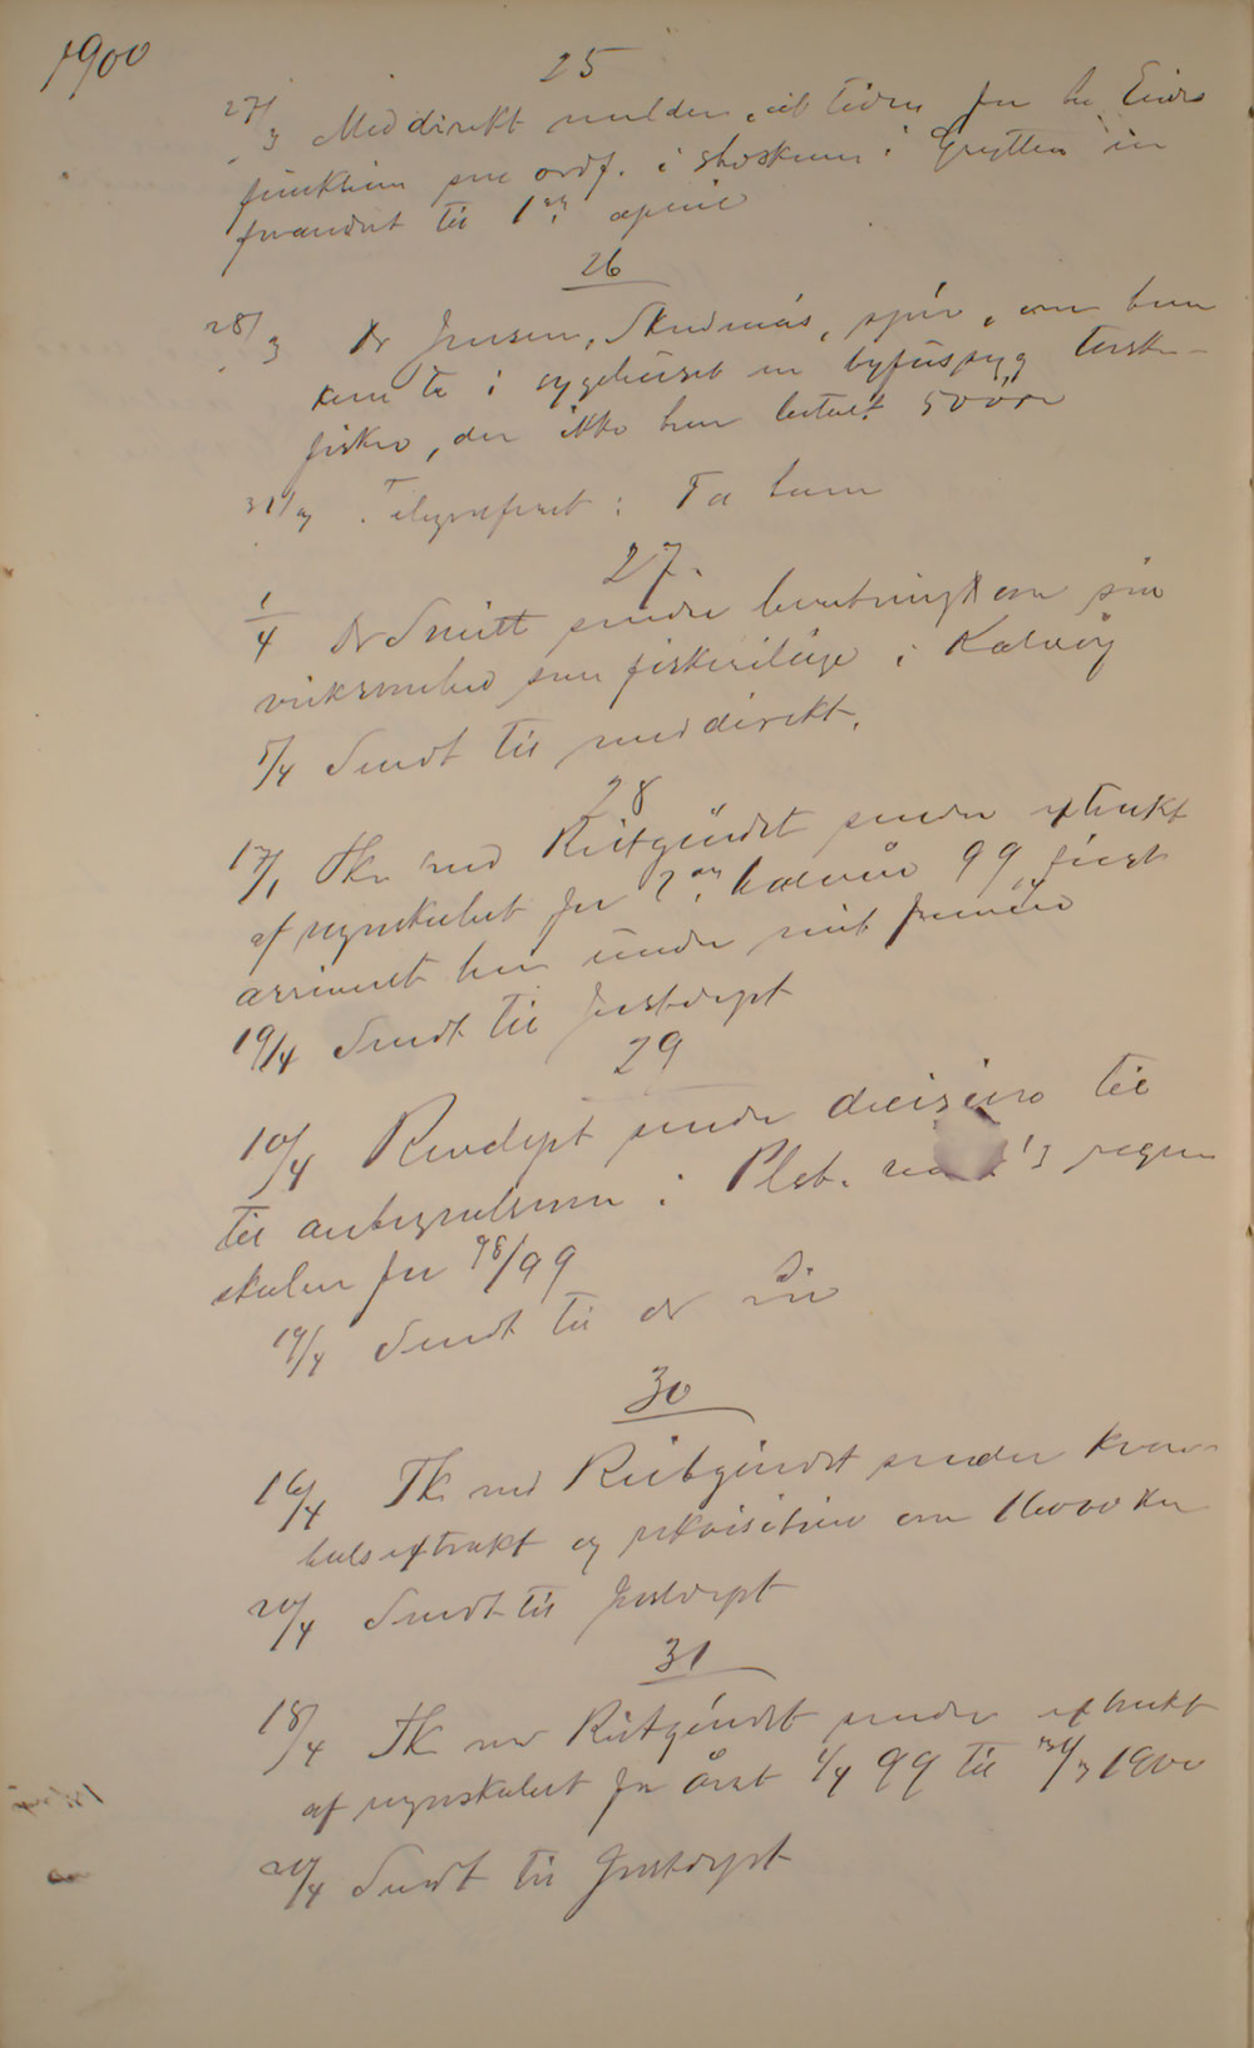 1900
25
27/3 Meddirekt melder, at tiden for hr Eides
funktion som ordf. i shoskom i Grytten er
forandret til 1ste april
26
28/3 Dr Jensen, Skudenäs, spør, om han
kan ta i sygehuset en tyfussyg torske-
fisker, der ikke har betalt 50 øre
31/3 Telegraferet: Ta ham
27.
1/4 Dr Smitt sender beretning om sin
virksomhed som fiskerilæge i Kalvåg
5/4 Sendt til meddirekt.
28
17/1 Tkr ved Reitgjerdet sender extrakt
af regnskabet for 2det halvår 99, først
arriveret hen under mit fravær
19/4 Sendt til Justdept
29
10/4 Revdept sender decisions til
til antegnelserne i Plst. regn
skaber for 98/99
19/4 Sendt til dr
30
16/4 Tk ved Reitgjerdet sender kvar-
talsextrakt og rekvisition om 16000 kr
20/4 Sendt til Justdept
31
18/4 Tk ved Reitgjerdet sender extrakt
af regnskabet for året 1/4 99 til 31/3 1900
20/4 Sendt til Justdept